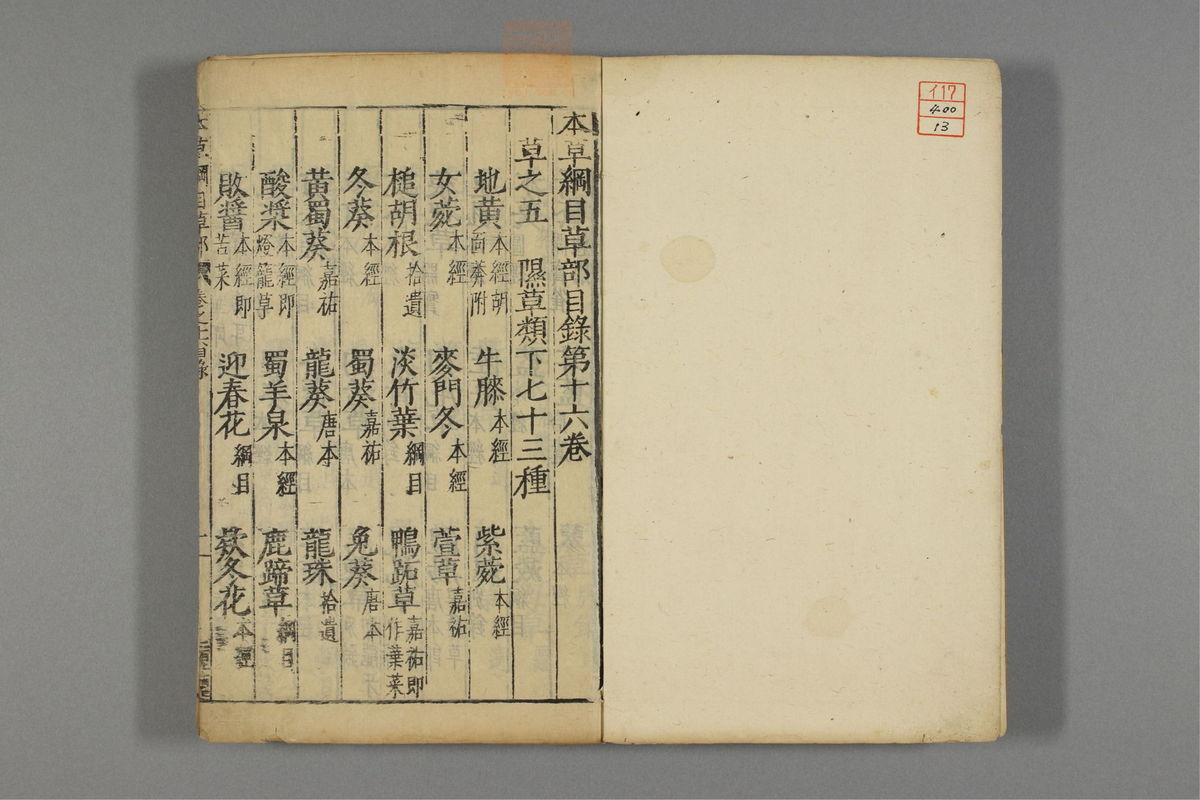 本草綱目草部目錄第十六卷
草之五　隰草類下七十三種
地黃 本經胡面莾附　牛膝 本經　紫菀 本經
女菀 本經　麥門冬 本經　萱草 嘉祐
槌胡根 拾遺　淡竹葉 綱目　鴨跖草 嘉祐即作葉菜
冬葵 本經　蜀葵 嘉祐　兔葵 唐本
黃蜀葵 嘉祐　龍葵 唐本　龍珠 拾遺
酸漿 本經即燈籠草　蜀羊泉 本經　鹿蹄草 綱目
敗醬 本經即苦菜　迎春花 綱目　款冬花 本經
本草綱目草部
イ17
400
13